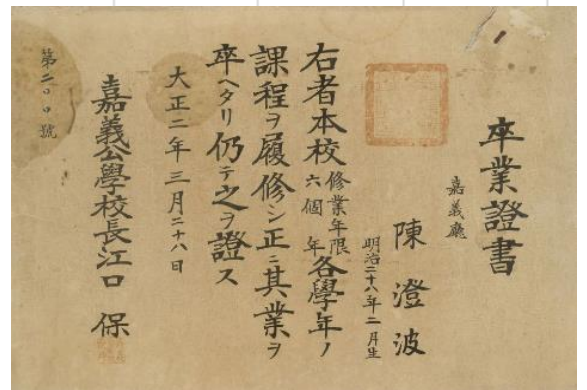 卒業證書
嘉義廳
陳澄波
明治二十八年二月生
右者本校修業年限六個年各學年ノ
課程ヲ履修シ正ニ其業ヲ
卒ヘタリ仍テ之ヲ證ス
大正二年三月二十八日
嘉義公學校長江口保
第二〇〇號